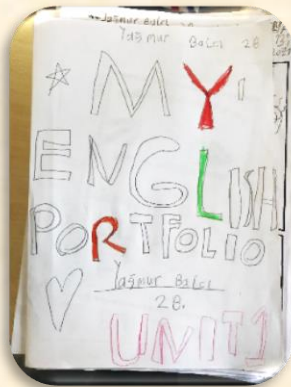 Yağmur Balcı 28
Yağmur Balcı 28
MY
ENGLISH
PORTFOLIO
Yağmur Balcı
28.
UNIT1